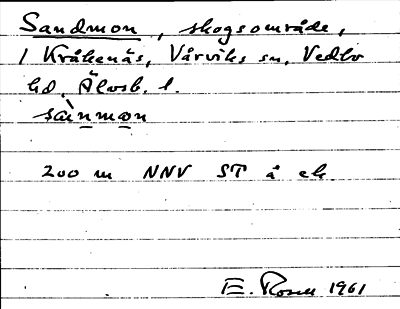 Sandmon, skogsområde,
1 Kråkenäs, Vårviks sn, Vedbo
hd, Älvsb. l.
sànmon
200 m NNV ST å ek.
E. Rosell 1961